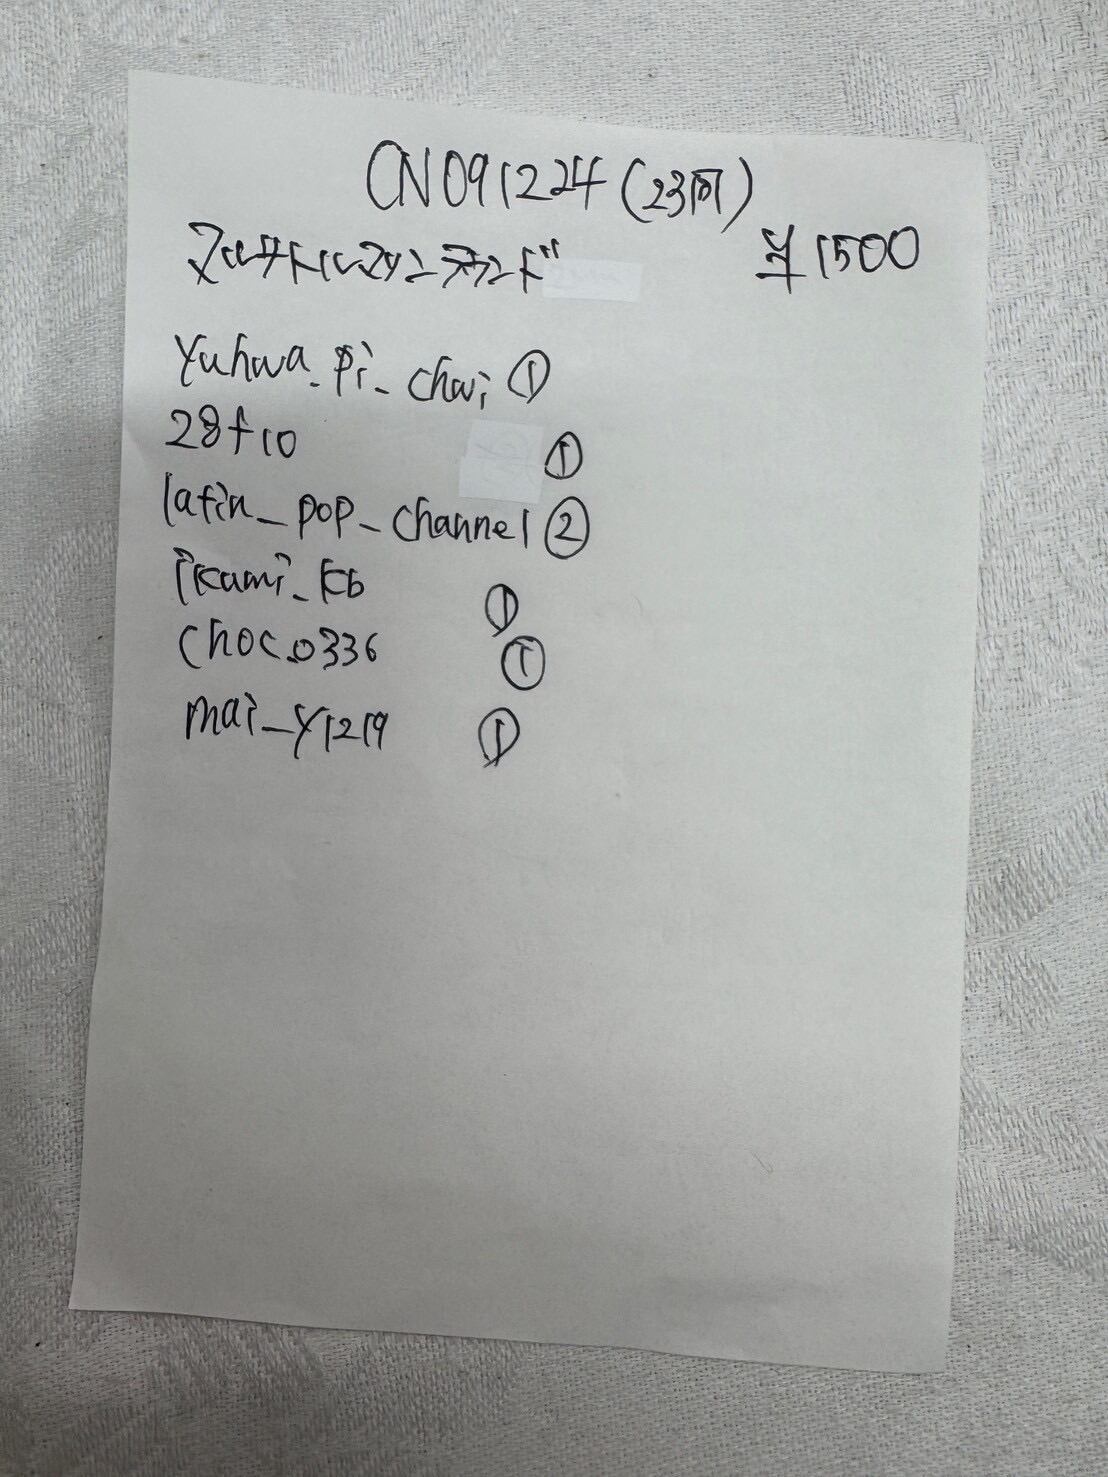 CN091224 (23回)
¥1500
yuhwa_pi_chai ①
28f10 ①
latin_pop_channel ②
ikumi_kb ①
choco.0336 ①
mai_y1219 ①